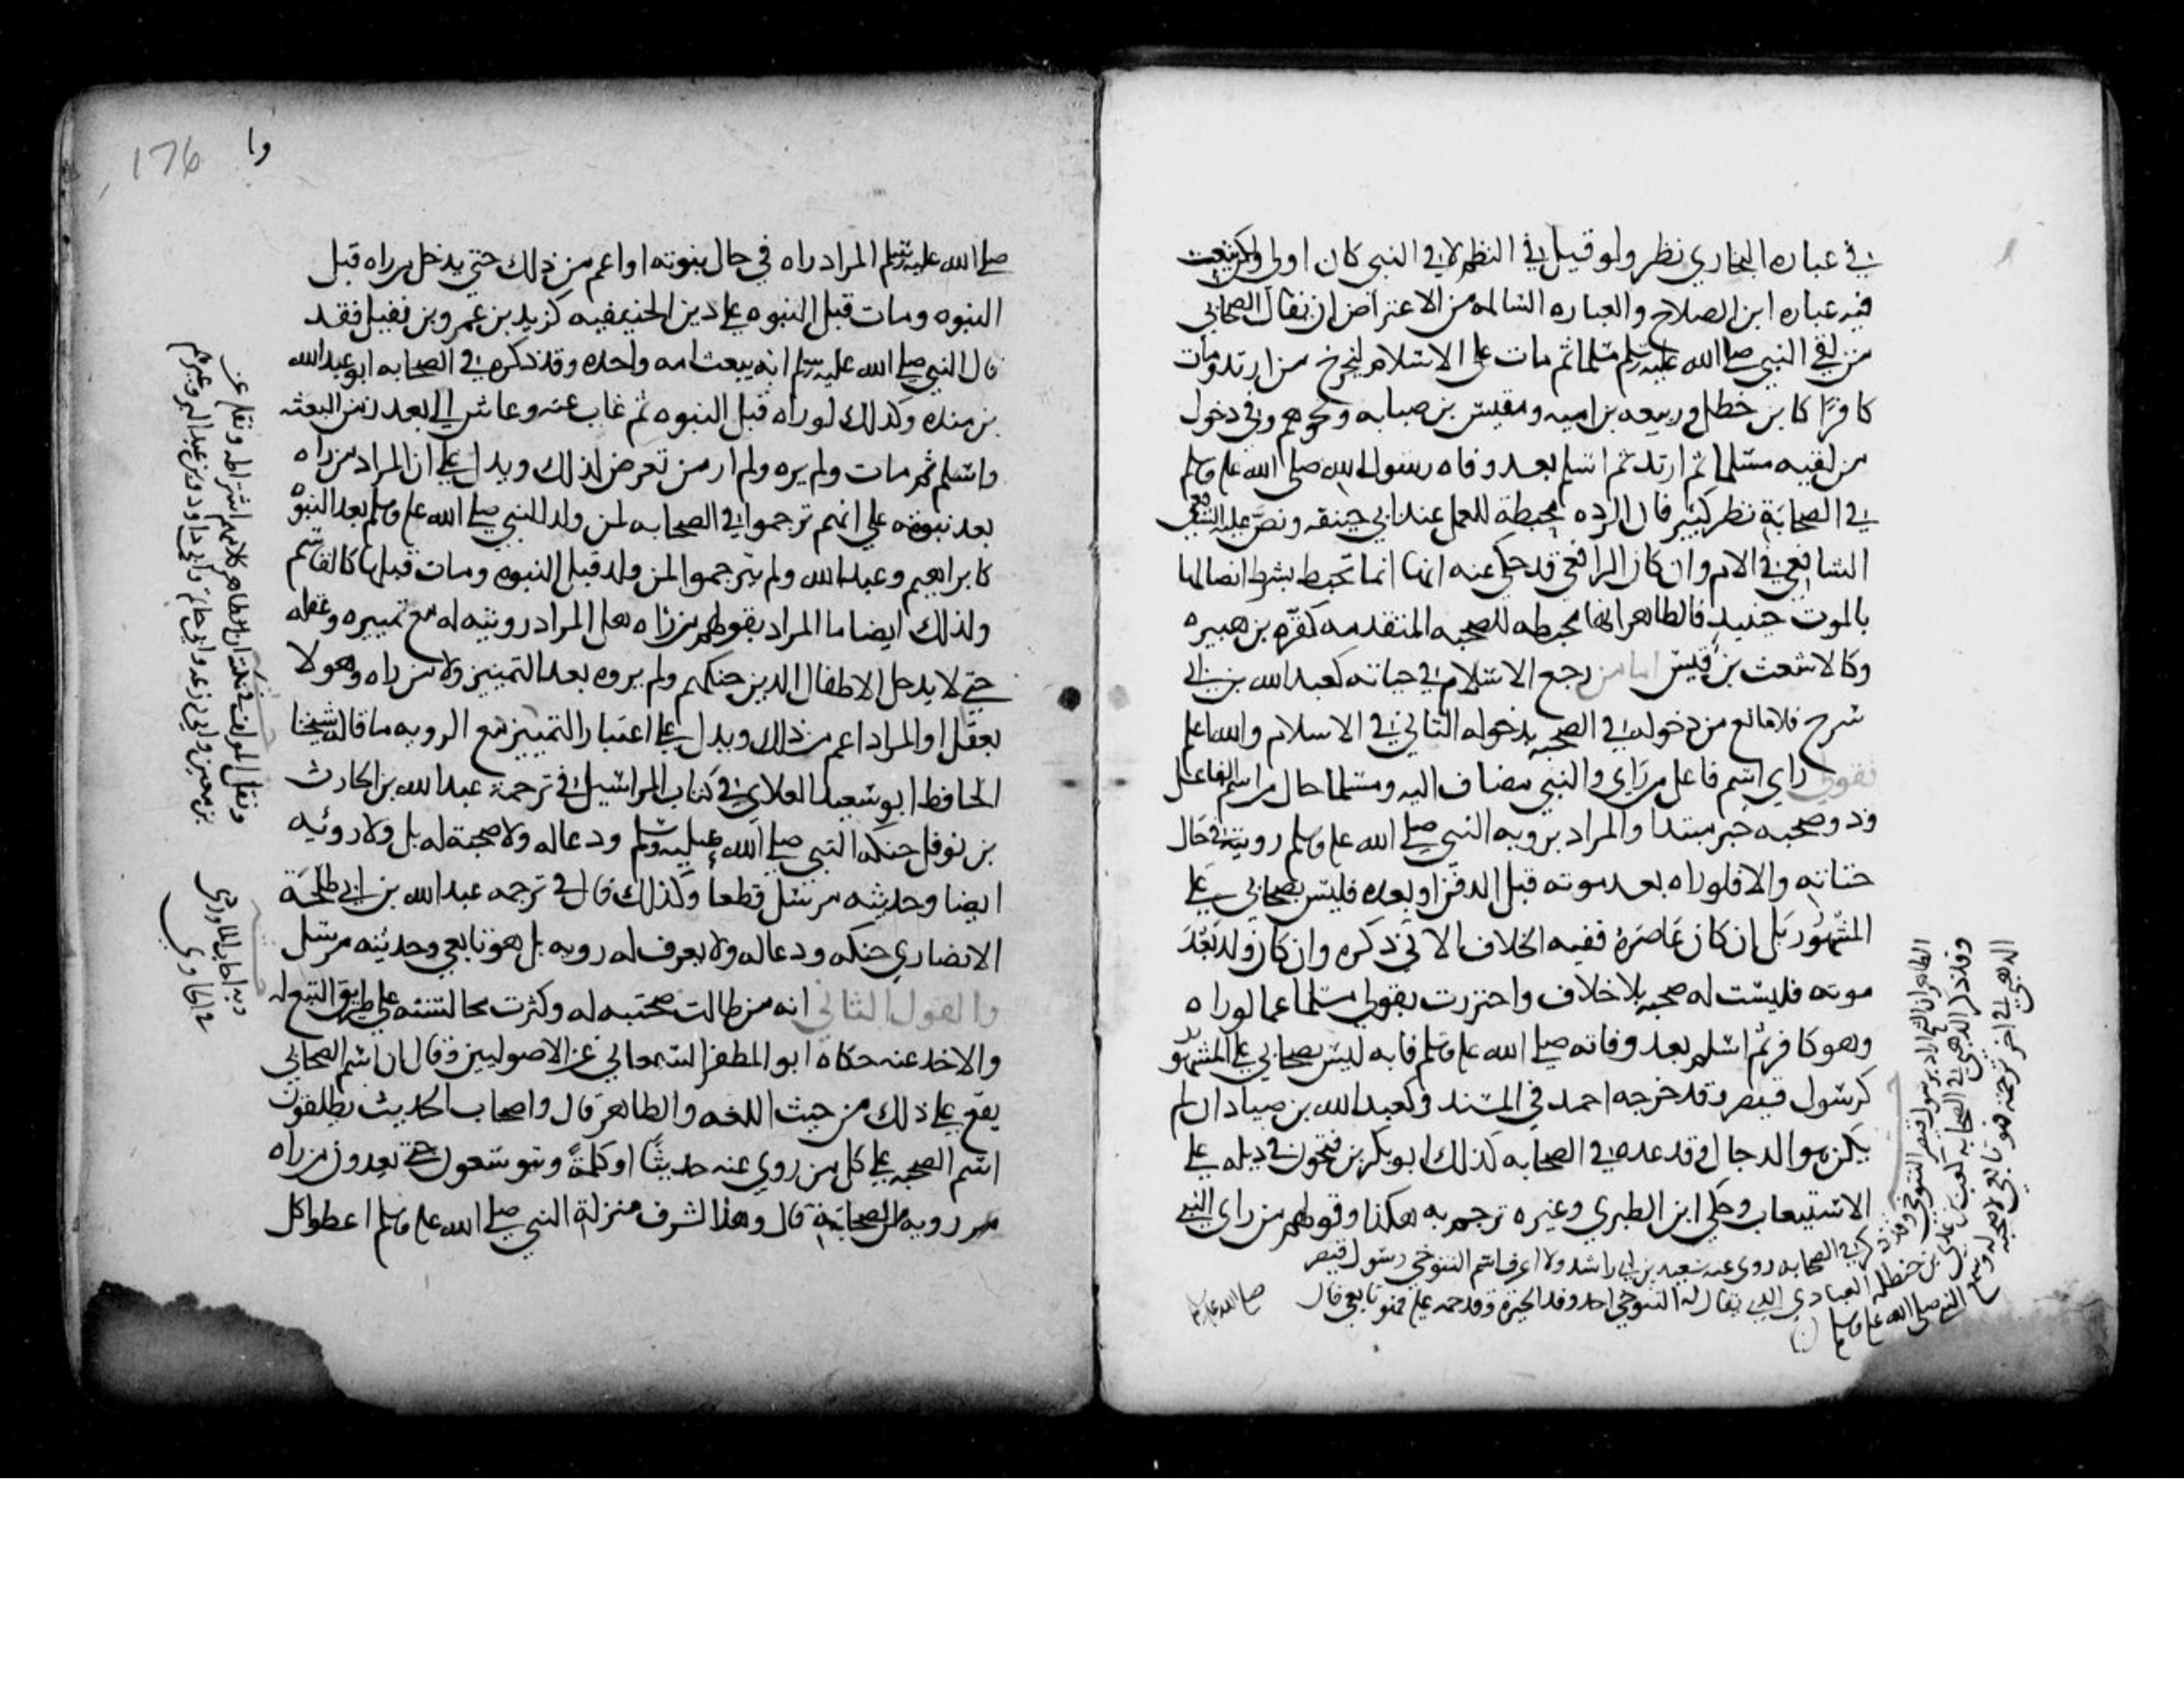 في عباره البخاري نظر ولو قيل في النظم لاقي النبي كان اولي ولكن تبعت
فيه عباره ابن الصلاح والعباره السالمه من الاعتراض ان يقال الصحابي
من لقي النبي صلى الله عليه وسلم مسلما ثم مات على الاسلام ليخرج من ارتد ومات
كافرًا كابن خطل وربيعه بن اميه ومقيس بن صبابه ونحوهم وفي دخول
من لقيه مسلما ثم ارتد ثم اسلم بعد وفاه رسول الله صلى الله عليه وسلم
في الصحابة نظر كبير فان الرده محبطة للعمل عند ابي حنيفه ونص عليه
الشافعي في الام وان كان الرافعي قد حكي عنه انها انما تحبط بشرط اتصالها
بالموت حينيد فالظاهر انها محبطه للصحبه المتقدمه كقرّه بن هبيره
وكالاشعث بن قيس اما من رجع الاسلام في حياته كعبد الله بن ابي
سرح فلا مانع من دخوله في الصحبه بدخوله الثاني في الاسلام والله اعلم
فقولي راي اسم فاعل من راي والنبي مضاف اليه ومسلما حال من اسم الفاعل
وذو صحبه خبر مبتدا والمراد بروية النبي صلى الله عليه وسلم رويته في حال
حياته والا فلو راه بعد موته قبل الدفن او بعده فليس بصحابي على
المشهور بل ان كان عاصره ففيه الخلاف الاتي ذكره وان كان ولد بعد
موته فليست له صحبه بلا خلاف واحترزت بقولي مسلما عما لو راه
وهو كافر ثم اسلم بعد وفاته صلى الله عليه وسلم فانه ليس بصحابي على المشهور
كرسول قيصر وقد خرجه احمد في المسند وكعبد الله بن صياد ان لم
يكن هو الدجال وقد عده في الصحابه كذلك ابو بكر بن فتحون في ذيله على
الاستيعاب وحكي ابن الطبري وغيره ترجم به هكذا وقولهم من راي النبي
الظاهر ان الشيخ اراد برسول قيصر التنوخي وقد ذكر في الصحابه روى عنه سعيد بن ابي راشد ولا اعرف اسم التنوخي رسول قيصر
وقد ذكر الذهبي في الصحابه كعب بن عدي بن حنظله العبادي الذي يقال له التنوخي احد وفد الحيره وقد حمر عليه فهو تابعي قال
الذهبي في اخر ترجمته فهو تابعي لا صحبه له وسمع النبي صلى الله عليه وسلم
صلى الله عليه وسلم
وا
176
صلى الله عليه وسلم المراد راه في حال نبوته او اعم من ذلك حتى يدخل من راه قبل
النبوه ومات قبل النبوه على دين الحنيفيه كزيد بن عمرو بن نفيل فقد
قال النبي صلى الله عليه وسلم انه يبعث امه واحده وقد ذكره في الصحابه ابو عبد الله
بن منده وكذلك لو راه قبل النبوه ثم غاب عنه وعاش الي بعد زمن البعثه
واسلم ثم مات ولم يره ولم ار من تعرض لذلك ويدل على ان المراد من راه
بعد نبوته على انهم ترجموا في الصحابه لمن ولد للنبي صلى الله عليه وسلم بعد النبوه
كابراهيم وعبد الله ولم يترجموا لمن ولد قبل النبوه ومات قبلها كالقاسم
ولذلك ايضا ما المراد بقولهم من راه هل المراد رويته له مع تمييزه وعقله
حتى لا يدخل الاطفال الدين حنكهم ولم يروه بعد التمييز ولا من راه وهو لا
يعقل او المراد اعم من ذلك ويدل على اعتبار التمييز مع الرويه ما قاله شيخنا
الحافظ ابو سعيد العلاي في كتاب المراسيل في ترجمة عبد الله بن الحارث
بن نوفل حنكه النبي صلى الله عليه وسلم ودعا له ولا صحبة له بل ولا رؤيه
ايضا وحديثه مرسل قطعا وكذلك قال في ترجمه عبد الله بن ابي طلحة
الانصاري حنكه ودعا له ولا يعرف له رويه بل هو تابعي وحديثه مرسل
والقول الثاني انه من طالت صحبته له وكثرت مجالسته على طريق التبع له
والاخذ عنه حكاه ابو المظفر السمعاني عن الاصوليين وقال ان اسم الصحابي
يقع على ذلك من حيث اللغه والظاهر قال واصحاب الحديث يطلقون
اسم الصحبه على كل من روي عنه حديثًا او كلمةً ويتوسعون حتى يعدون من راه
رويه من الصحابة قال وهذا لشرف منزلة النبي صلى الله عليه وسلم اعطوا كل
ونقل المولف في نكته ان ظاهر كلامهم اشتراطه ونقله عن
بن معين وابي زرعه وابي حاتم وابي داود وبن عبد البر وغيرهم
وبه اجاب الماوردي
في الحاوي